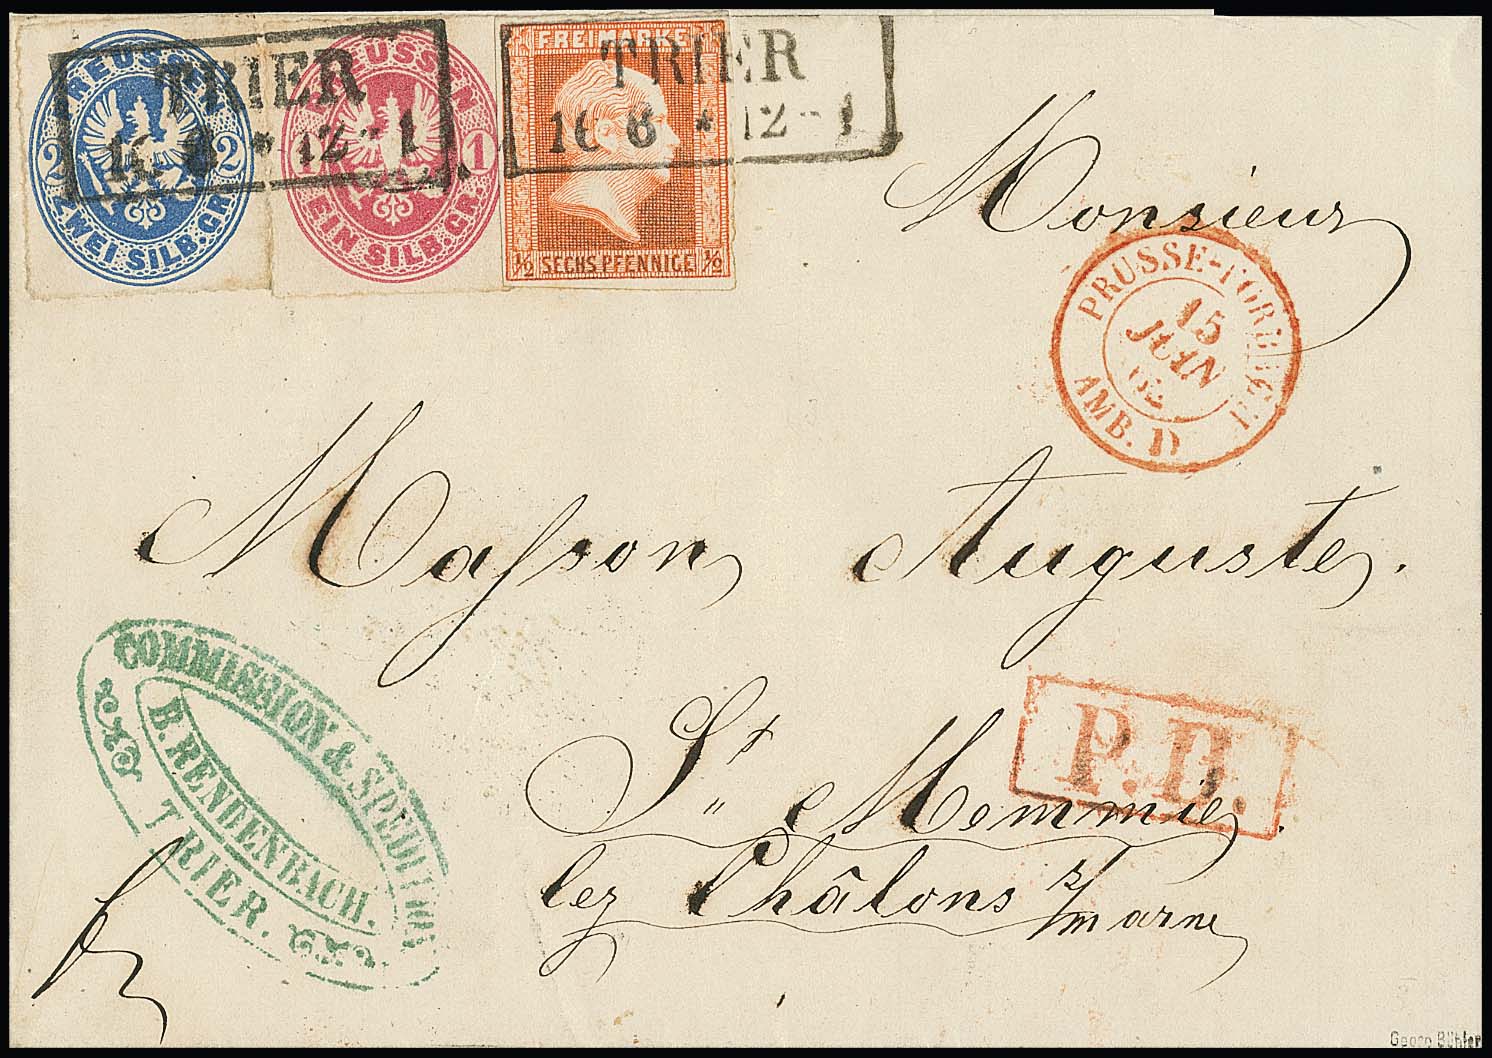 PREUSSEN
2 2
ZWEI SILB.GR.
PREUSSEN
1 1
EIN SILB.GR.
FREIMARKE
½ SECHS PFENNIGE ½
TRIER
6 * 12-1
TRIER
16 6 * 12-1
Monsieur
PRUSSE-FORBACH
15
JUIN
62
AMB. D
Maſson Auguste.
COMMISSION & SPEDITION
B. RENDENBACH.
TRIER.
P.D.
St Memmie.
lez Châlons s/marne
Georg Bühler